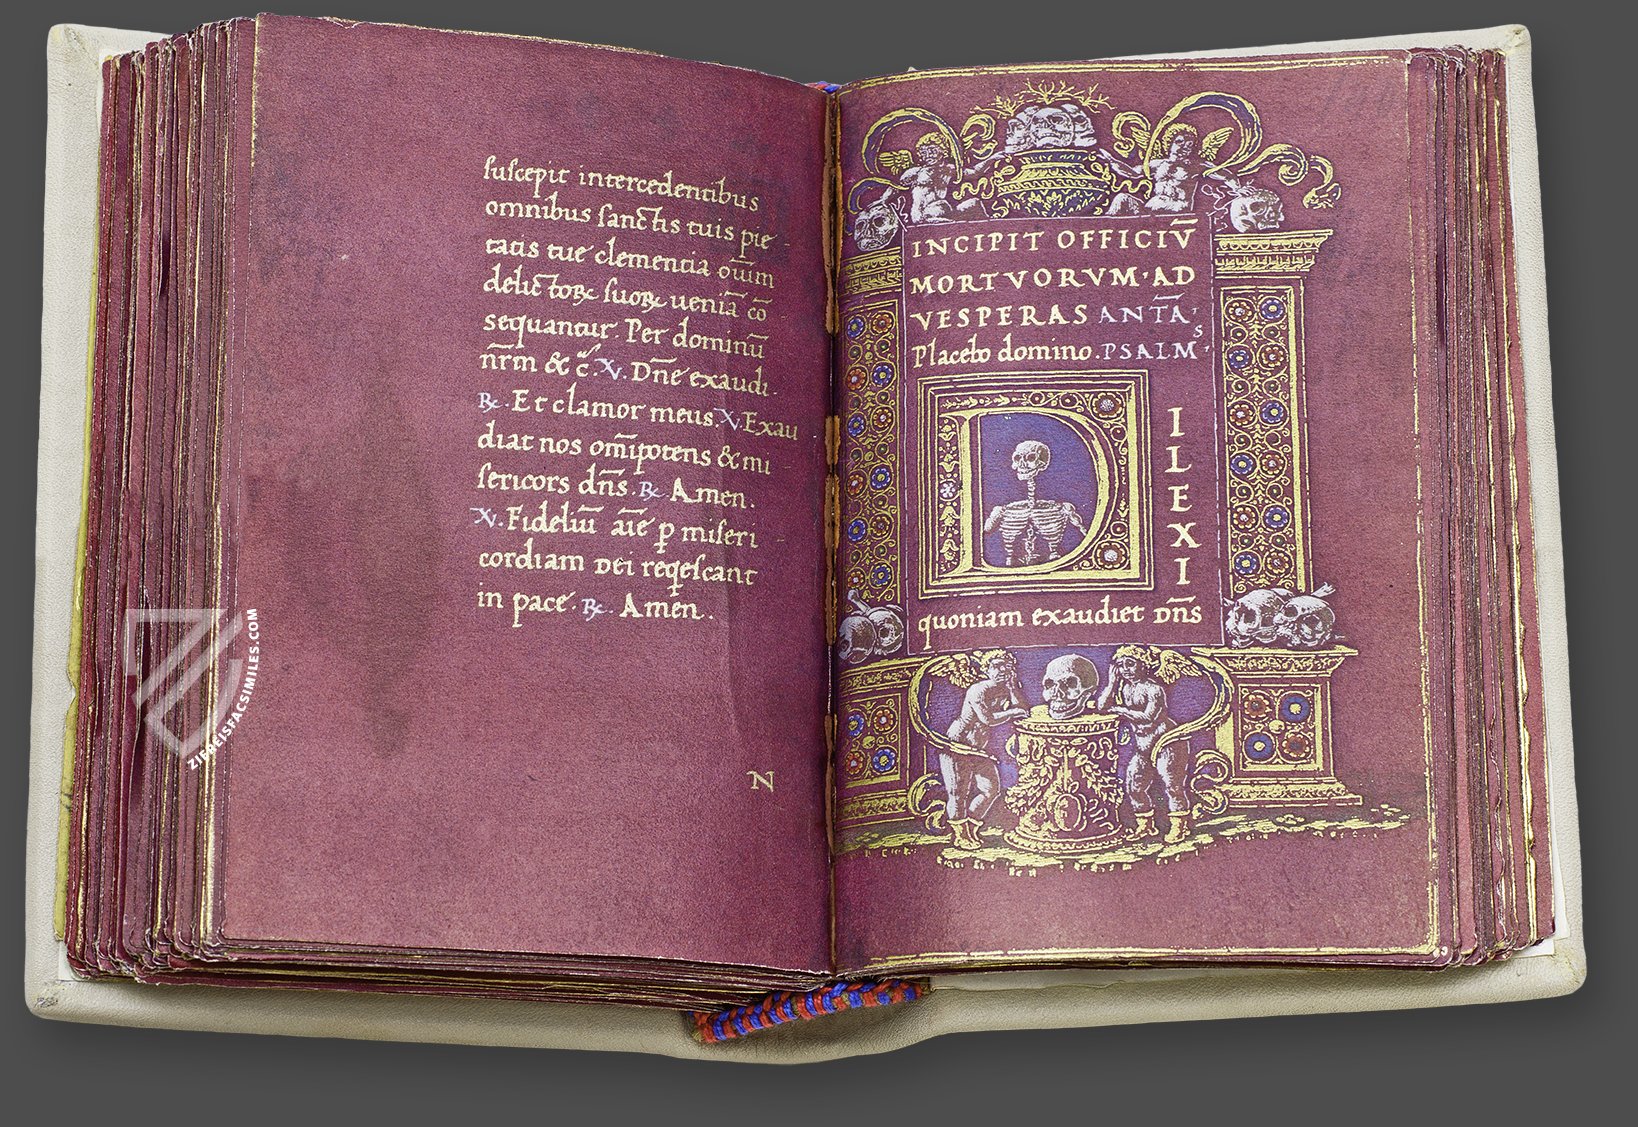 suscepit intercedentibus
omnibus sanctis tuis pie
tatis tue clementia om̅im
delictoꝝ suoꝝ uenia̅ co̅
sequantur. Per dominu̅
nr̅m & c̅. ℣. Dn̅e exaudi.
℞. Et clamor meus. ℣. Exau
diat nos om̅ipotens & mi
sericors dn̅s. ℞. Amen.
℣. Fideliu̅ ai̅e ꝑ miseri
cordiam Dei reqescant
in pace. ℞. Amen.
N
INCIPIT OFFICIV̅
MORTVORVM · AD
VESPERAS ANTA̅S
Placebo domino. PSALM'
D
I
L
E
X
I
quoniam exaudiet Dn̅s
ZIEREISFACSIMILES.COM